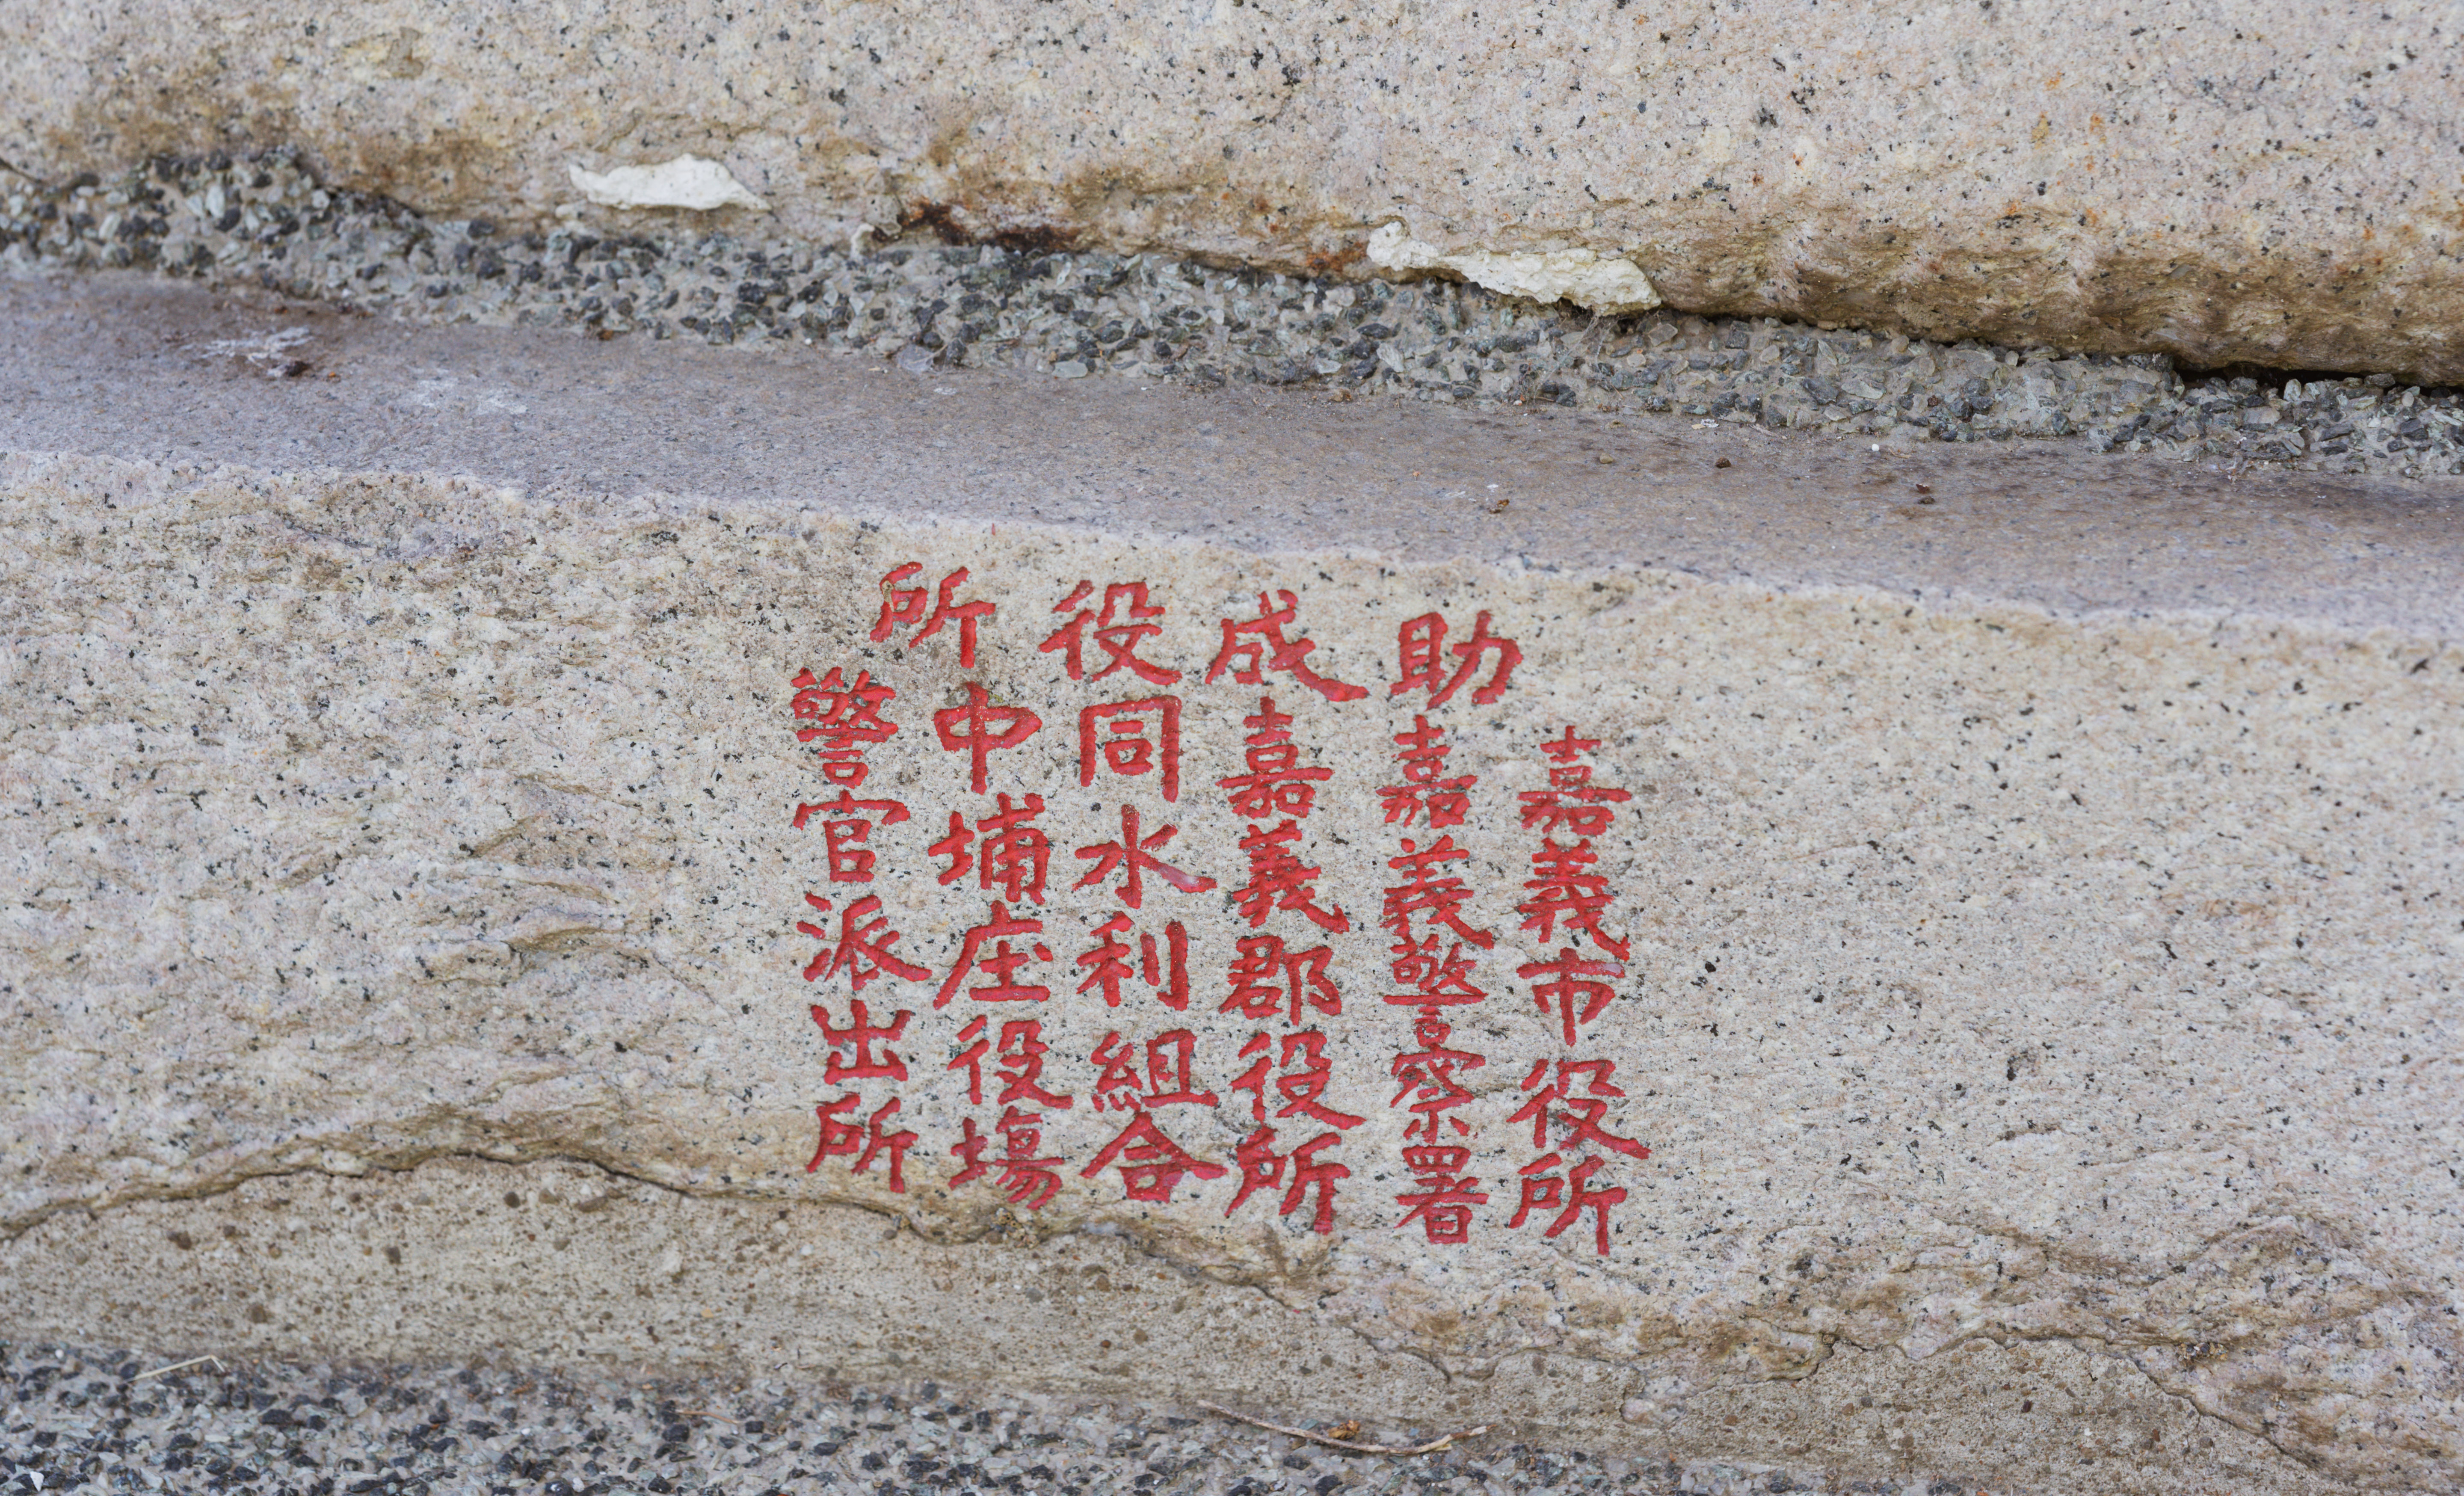 助成役所
嘉義市役所
嘉義警察署
嘉義郡役所
同水利組合
中埔庄役塲
警官派出所